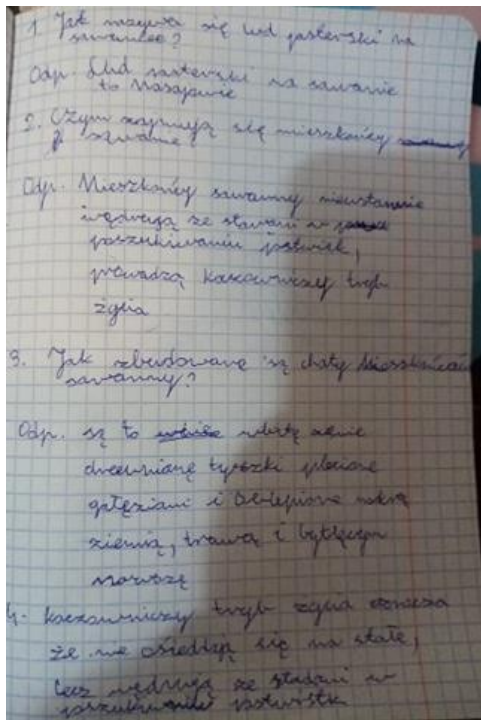 1. Jak nazywa się lud pasterski na
sawannie?
Odp. Lud pasterski na sawannie
to Masajowie
2. Czym zajmują się mieszkańcy
Odp. Mieszkańcy sawanny nieustannie
wędrują ze stadami w
poszukiwaniu pastwisk,
prowadzą koczowniczy tryb
życia
3. Jak zbudowane są chaty Mieszkańców
sawanny?
Odp. są to
drewniane tyczki plecione
gałęziami i oblepione mokrą
ziemią, trawą i bydlęcym
4. koczowniczy tryb życia oznacza
że nie osiedlają się na stałe,
lecz wędrują ze stadami w
poszukiwaniu pastwisk